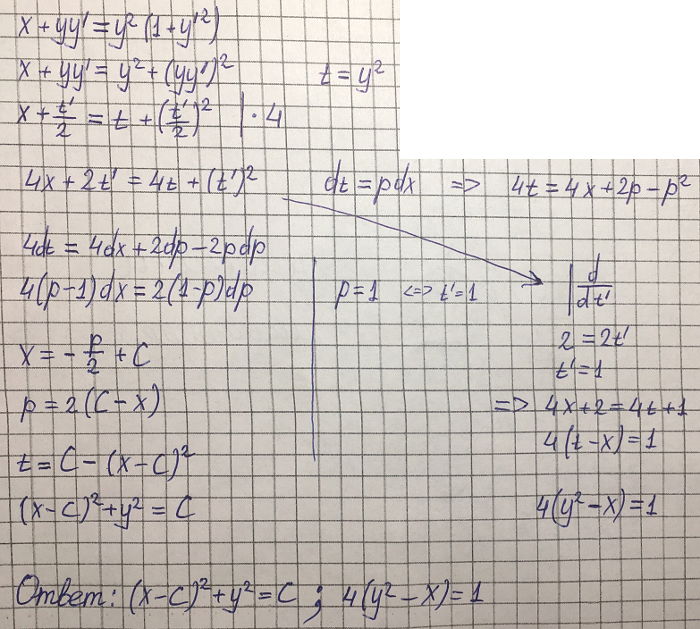 x + yy' = y² (1 + y'²)
x + yy' = y² + (yy')²    t = y²
x + t'/2 = t + (t'/2)² | · 4
4x + 2t' = 4t + (t')²    dt = pdx => 4t = 4x + 2p - p²
4dt = 4dx + 2dp - 2pdp
4(p-1)dx = 2(1-p)dp    p = 1 <=> t' = 1    | d/dt'
2 = 2t'
x = - p/2 + C    t' = 1
p = 2(C - x)    => 4x + 2 = 4t + 1
4(t - x) = 1
t = C - (x - C)²
(x - C)² + y² = C    4(y² - x) = 1
Ответ: (x - C)² + y² = C ; 4(y² - x) = 1